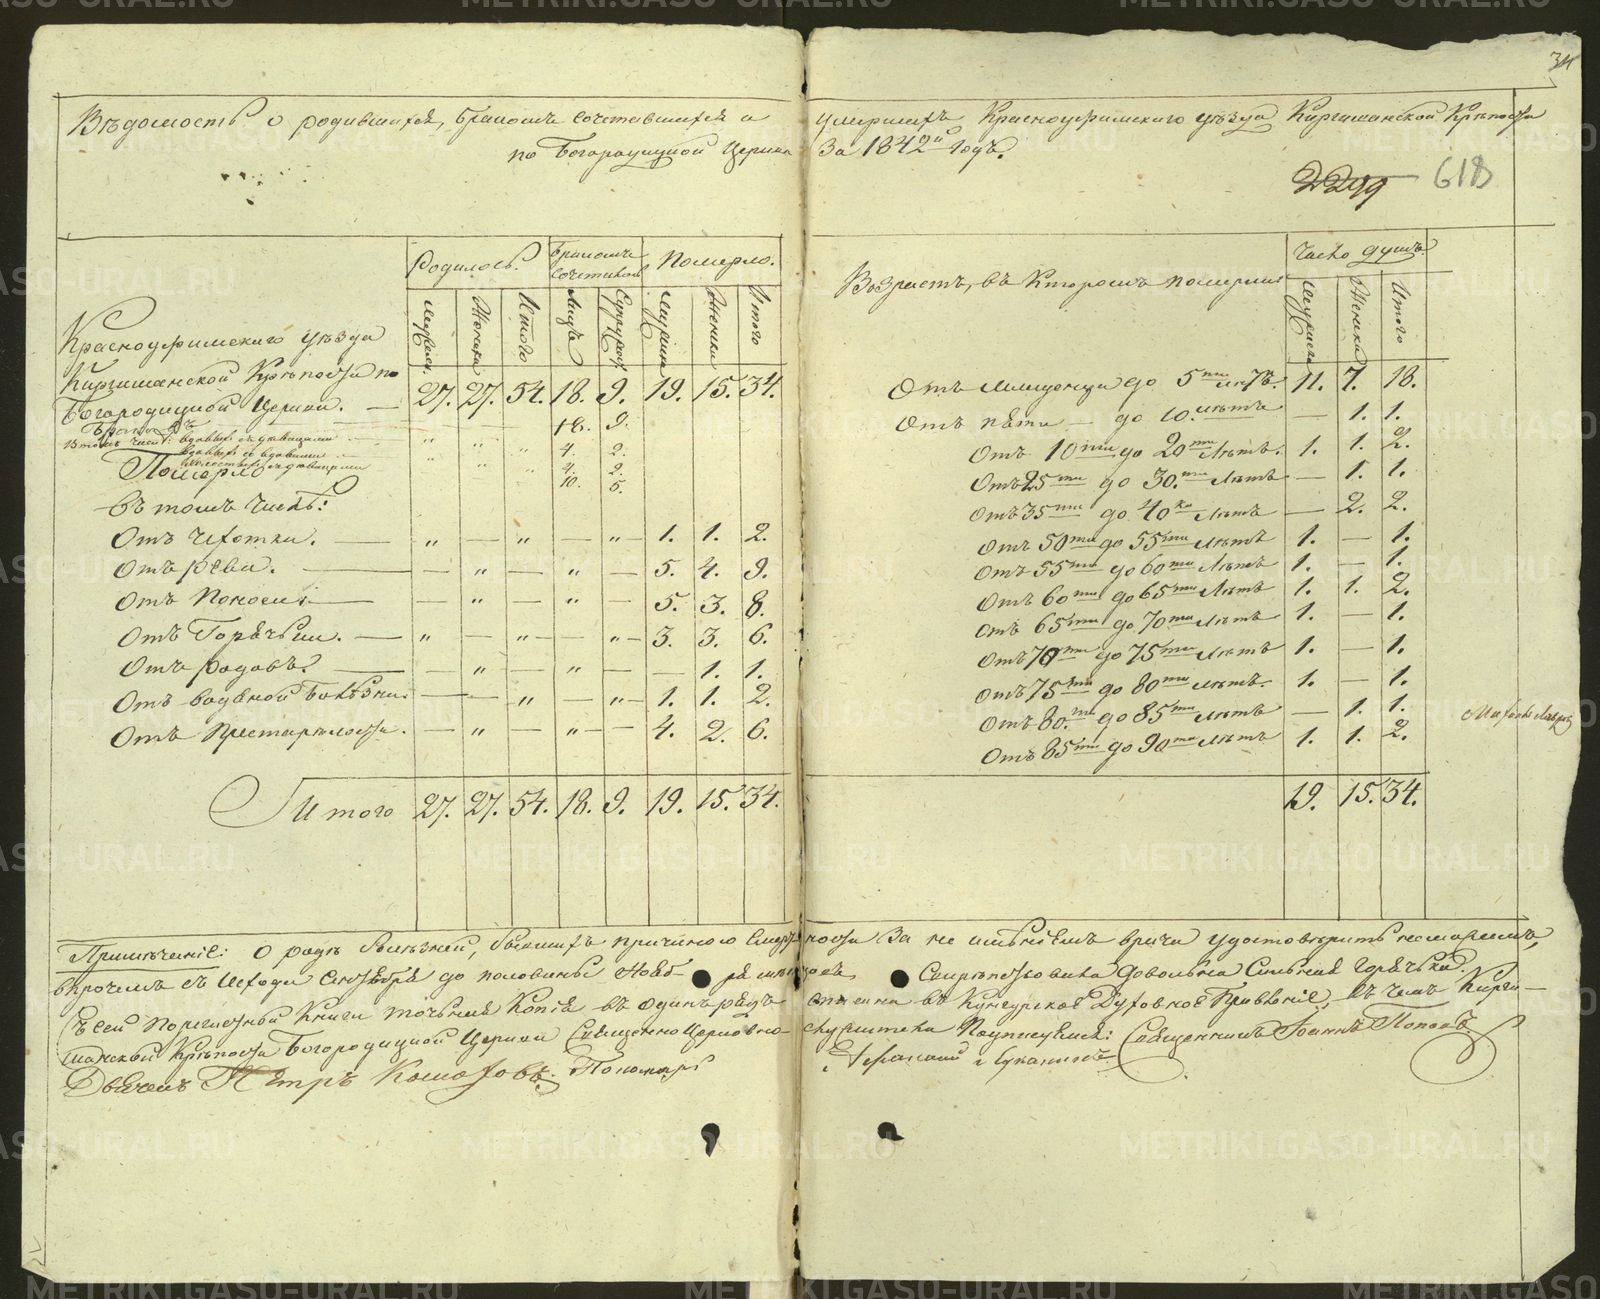 34
Вѣдомость о родившихся, бракомъ сочетавшихся и умершихъ Красноуфимскаго уѣзда Киргишанской Крѣпости
по Богородицкой Церкви За 1842й Годъ.
2299 618
Родилось. Бракомъ сочеталось Померло.
Мужеска Женска Итого Лицъ Супружествъ Мужеска Женска Итого
Красноуфимскаго уѣзда
Киргишанской Крѣпости по
Богородицкой Церкви. — 27. 27. 54. 18. 9. 19. 15. 34.
Браковъ 18. 9.
Въ томъ числѣ: вдовыхъ съ дѣвицами „ „ 4. 2.
вдовыхъ со вдовами „ „ 4. 2.
холостыхъ съ дѣвицами 10. 5.
Померло
въ томъ числѣ:
Отъ Чахотки. — „ — „ — „ — 1. 1. 2.
Отъ рѣви. — — „ — „ — 5. 4. 9.
Отъ Поноса. — — „ — „ — 5. 3. 8.
Отъ Горячьки. — „ — „ — „ — 3. 3. 6.
Отъ родовъ. — — „ — „ — — 1. 1.
Отъ водяной Болѣзни. — — „ — „ — 1. 1. 2.
Отъ Престарѣлости. — „ — „ — — 4. 2. 6.
Итого 27. 27. 54. 18. 9. 19. 15. 34.
Возрастъ, въ Которомъ померли Число душъ.
Мужеска Женска Итого
Отъ Младенца до 5ти лѣтъ. 11. 7. 18.
Отъ пяти — до 10. лѣтъ — 1. 1.
Отъ 10ти до 20ти Лѣтъ. 1. 1. 2.
Отъ 25ти до 30.ти Лѣтъ — 1. 1.
Отъ 35ти до 40ка Лѣтъ — 2. 2.
Отъ 50ти до 55ти Лѣтъ 1. — 1.
Отъ 55ти до 60ти Лѣтъ 1. — 1.
Отъ 60ти до 65ти Лѣтъ 1. 1. 2.
Отъ 65ти до 70ти Лѣтъ 1. — 1.
Отъ 70ти до 75ти Лѣтъ 1. — 1.
Отъ 75ти до 80ти Лѣтъ. 1. — 1.
Отъ 80.ти до 85ти Лѣтъ — 1. 1.
Отъ 85ти до 90та Лѣтъ 1. 1. 2.
19. 15. 34.
Примѣчаніе: О родѣ болѣзней, бывшихъ причиною Смертности За не имѣніемъ врача удостовѣрить не можемъ,
впрочемъ съ Исхода Сентября до половины Ноября свирѣпствовала довольна Сильная Горячька.
Съ сей Книги точьная Копія въ Кунгурское Духовное Правленіе, въ чемъ Кирги-
шанской Крѣпости Богородицкой Церкви Священно Церковно-служители Подписуемся: Священникъ Іоаннъ Поповъ
Дьячекъ Петръ Пономарь
METRIKI.GASO-URAL.RU